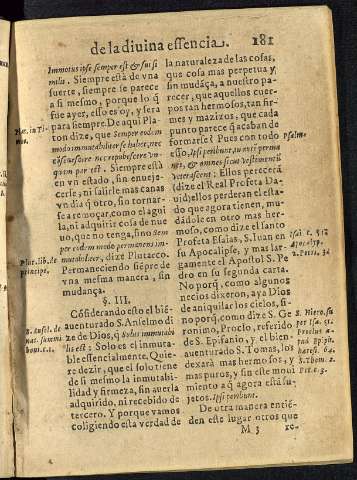 de la diuina essencia. 181
Immotus ipse semper est & sui si
milis. Siempre està de vna
suerte, siempre se parece
a si mesmo, porque lo q̃
fue ayer, esso es oy, y sera
para siempre. De aqui Pla-
ton dize, que Semper eodem
modo immutabiliter se habet, nec
vn estado, sin enueje-
cerse, ni salirle mas canas
vn dia q̃ otro, sin tornar-
se a remoçar, como el agui
la, ni adquirir cosa de nue
uo, que no tenga, sino Sem
per eodem modo permanens im-
mutabiliter, dize Plutarco.
Permaneciendo siẽpre de
vna mesma manera, sin
mudança.
§. III.
Cõsiderando esto el biẽ-
auenturado S. Anselmo di
ze de Dios, q̃ solus immutabi
lis est: Solo es el inmuta-
ble essencialmente. Quie-
re dezir, que el solo tiene
de si mesmo la inmutabi-
lidad y firmeza, sin auerla
adquirido, ni recebido de
tercero. Y porque vamos
coligiendo esta verdad de
Plat. in Ti-
Plut. lib. de
principe.
S. Ansel. de
la naturaleza de las cosas,
que cosa mas perpetua y
sin mudãça, a nuestro pa-
recer, que aquellos cuer-
pos tan hermosos, tan fir-
mes y mazizos, que cada
punto parece q̃ acaban de
formarse? Pues con todo
esso, Ipsi peribunt, tu verò perma
nes, & omnes sicut vestimentũ
veterascent: Ellos pereceràn
(dize el Real Profeta Da-
uid) ellos perderan el esta-
do que agora tienen, mu-
dãdole en otro mas her-
moso, como dize el santo
Profeta Esaias, S. Iuan en
su Apocalypse, y mas lar-
gamente el Apostol S. Pe
dro en su segunda carta.
No porq̃, como algunos
necios dixeron, aya Dios
de aniquilar los cielos, si-
no porq̃, como dize S. Ge
ronimo, Proclo, referido
de S. Epifanio, y el bien-
auenturado S. Tomas, los
dexarà mas hermosos, y
mas puros, y sin este moui
miento a q̃ agora està su-
jetos. Ipsi peribunt.
De otra manera entiẽ-
den este lugar otros que
Psalm.
Apocalyp.
2. Petri. 3.
S. Hiero. su
per Isa. 51.
Proclus a-
pud Epiph.
haeresi. 64.
S. Thom. 2.
M 3 re-